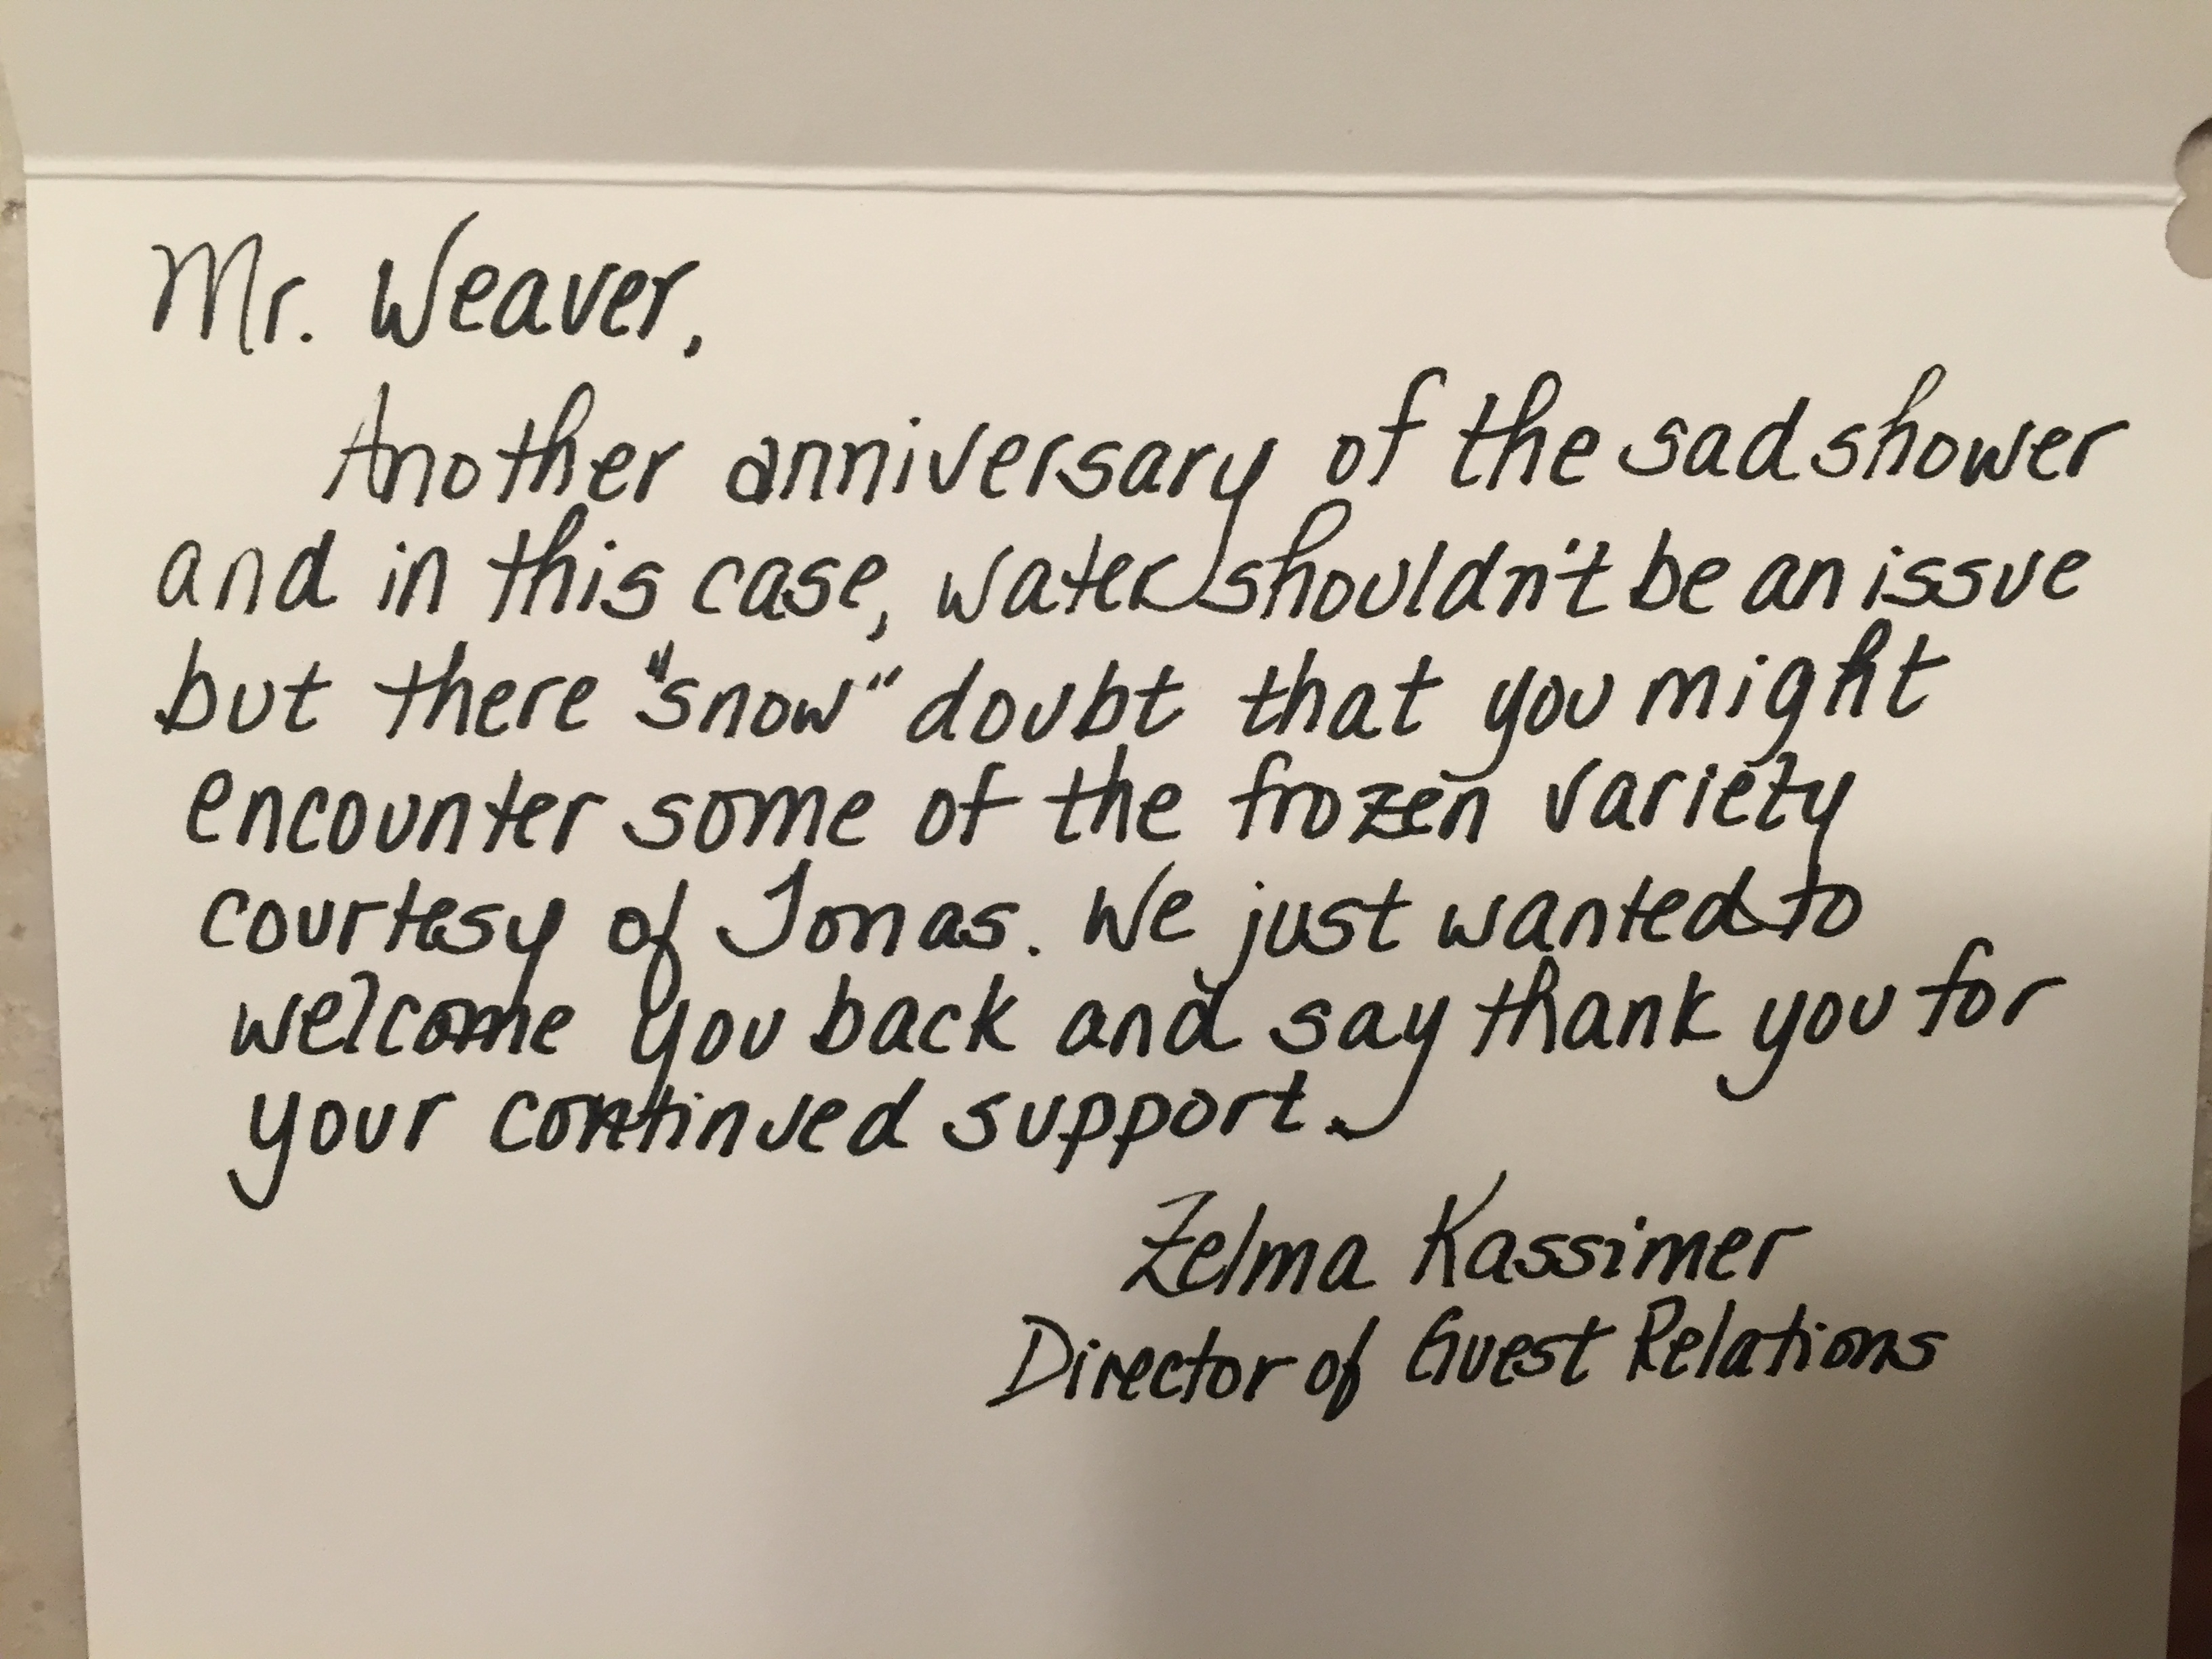 Mr. Weaver,
Another anniversary of the sad shower
and in this case, water shouldn't be an issue
but there "snow" doubt that you might
encounter some of the frozen variety
courtesy of Jonas. We just wanted to
welcome you back and say thank you for
your continued support.
Zelma Kassimer
Director of Guest Relations